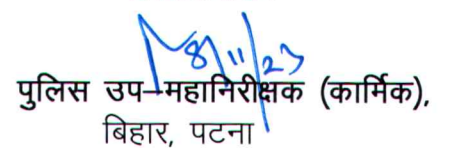 8/11/23
पुलिस उप–महानिरीक्षक (कार्मिक),
बिहार, पटना